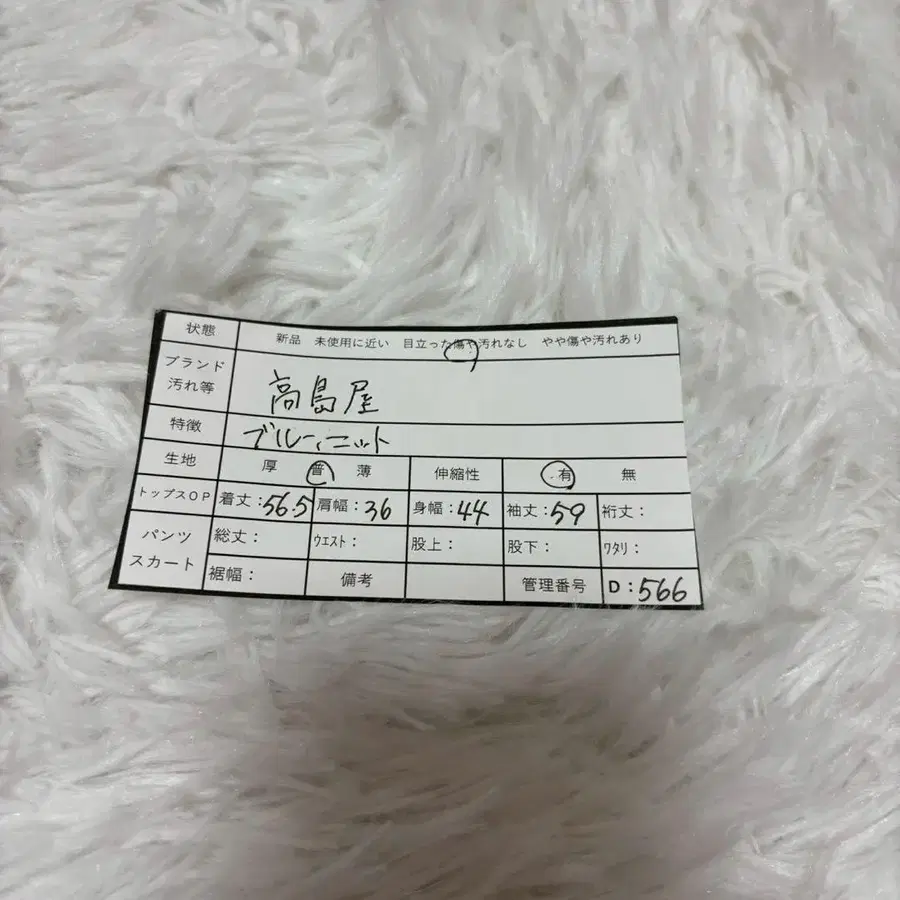 状態 新品 未使用に近い 目立った傷や汚れなし やや傷や汚れあり
ブランド
汚れ等 高島屋
特徴 ブルー、ニット
生地 厚 普 薄 伸縮性 有 無
トップスOP 着丈:56.5 肩幅:36 身幅:44 袖丈:59 裄丈:
パンツ
スカート 総丈: ウエスト: 股上: 股下: ワタリ:
裾幅: 備考 管理番号 D:566